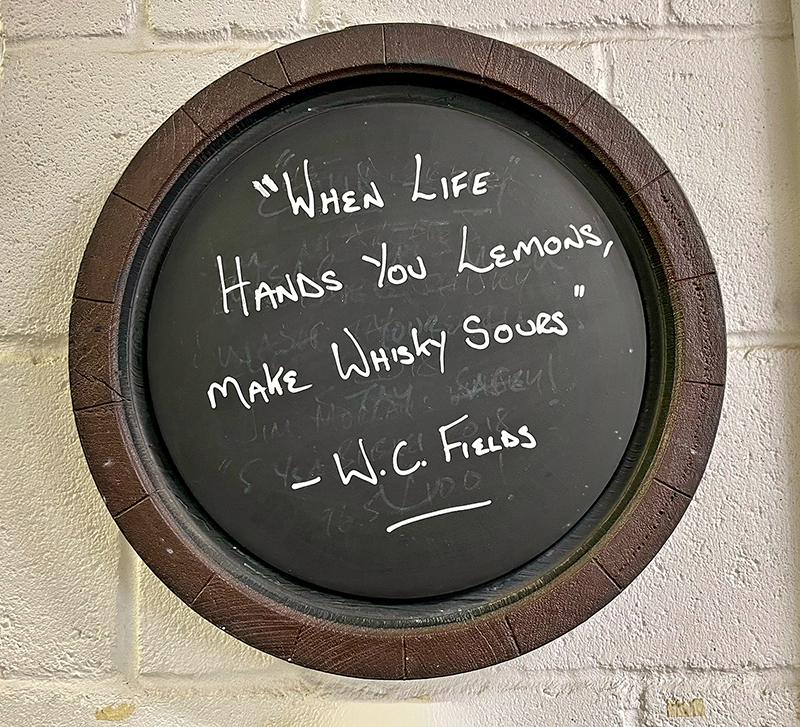 "When Life
Hands You Lemons,
Make Whisky Sours"
- W.C. Fields